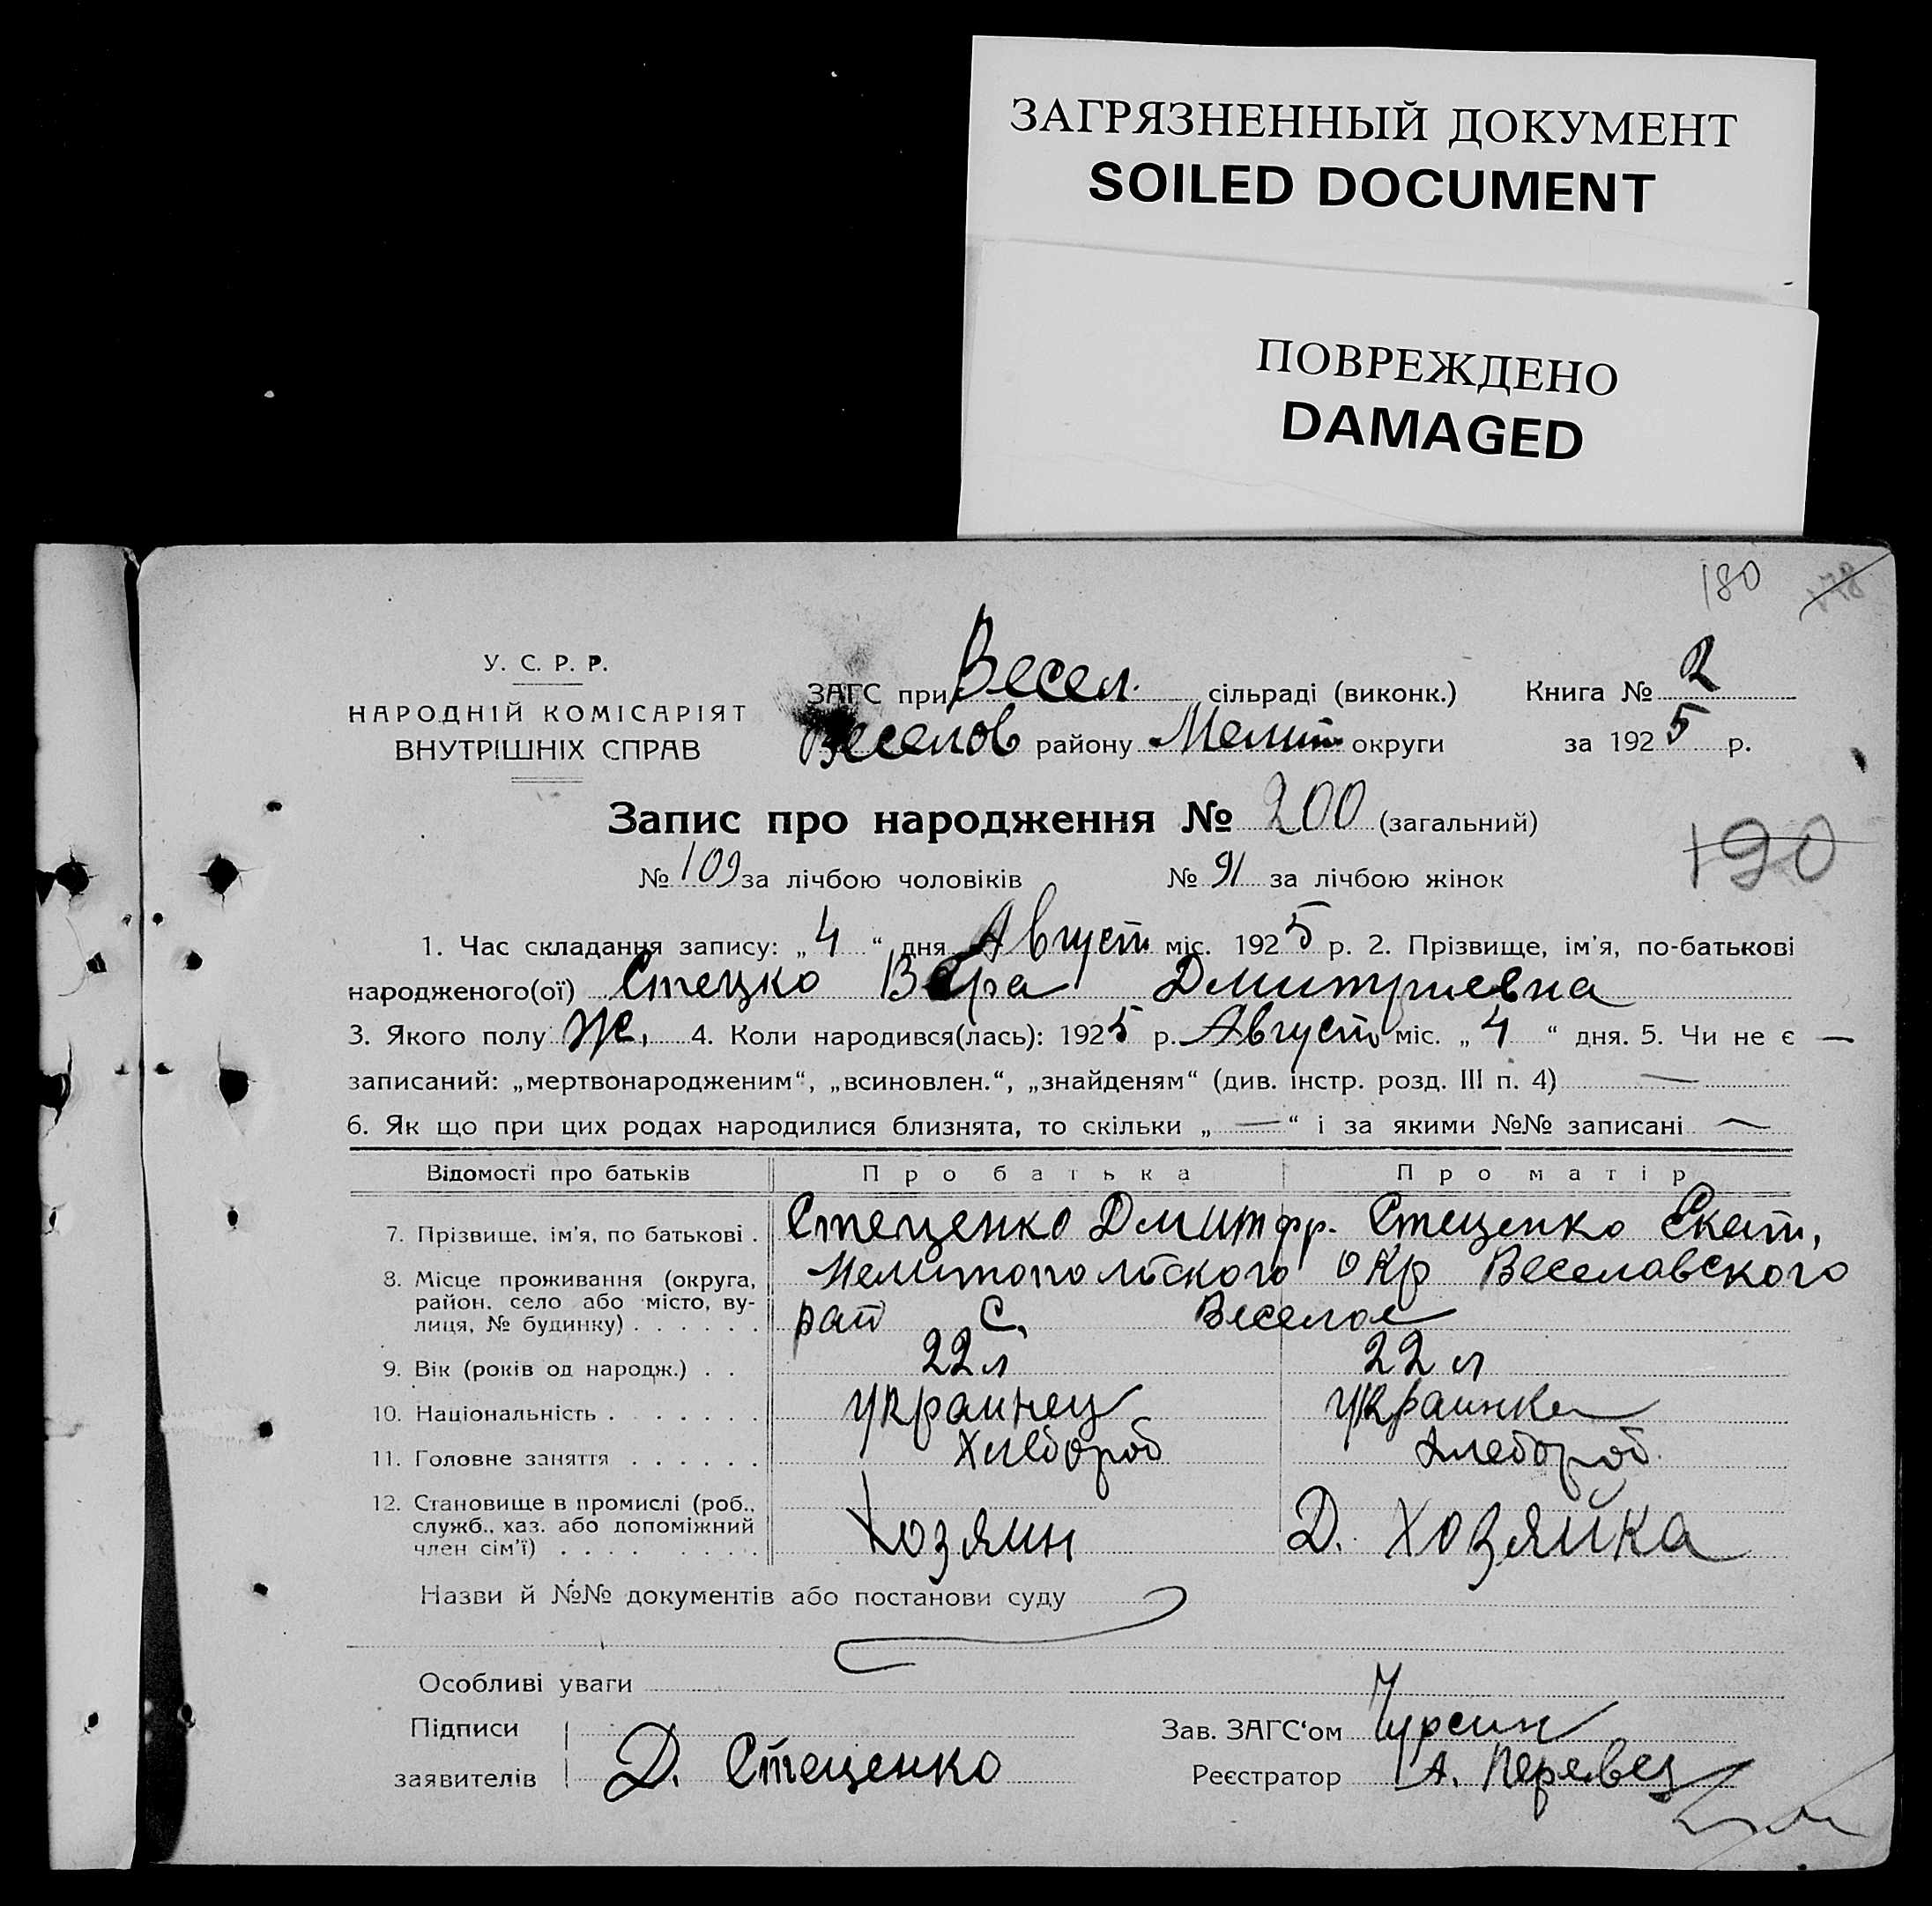 ЗАГРЯЗНЕННЫЙ ДОКУМЕНТ
SOILED DOCUMENT
ПОВРЕЖДЕНО
DAMAGED
180
У. С. Р. Р.
НАРОДНІЙ КОМІСАРІЯТ
ВНУТРІШНІХ СПРАВ
ЗАГС при Весел. сільраді (виконк.) Книга № 2
Веселов району Мелит округи за 1925 р.
Запис про народження № 200 (загальний)
190
№ 109 за лічбою чоловіків № 91 за лічбою жінок
1. Час складання запису: „4“ дня Август міс. 1925 р. 2. Прізвище, ім'я, по-батькові
народженого(ої) Стецко Вера Дмитриевна
3. Якого полу Ж. 4. Коли народився(лась): 1925 р. Август міс. „4“ дня. 5. Чи не є —
записаний: „мертвонародженим“, „всиновлен.“, „знайденям“ (див. інстр. розд. III п. 4) —
6. Як що при цих родах народилися близнята, то скільки „—“ і за якими №№ записані —
Відомості про батьків Про батька Про матір
7. Прізвище, ім'я, по батькові . Стеценко Дмит фр. Стеценко Екат,
8. Місце проживання (округа, район, село або місто, вулиця, № будинку) . . . . . . Мелитопольского окр Веселовского
рай С. Веселое
9. Вік (років од народж.) . . 22 л 22 л
10. Національність . . . . . . . украинец украинка
11. Головне заняття . . . . . . хлебороб хлебороб.
12. Становище в промислі (роб., служб., хаз. або допоміжний член сім'ї) . . . . Хозяин Д. Хозяйка
Назви й №№ документів або постанови суду
Особливі уваги
Підписи Зав. ЗАГС'ом Чурсин
заявителів Д. Стеценко Реєстратор А. Перевез